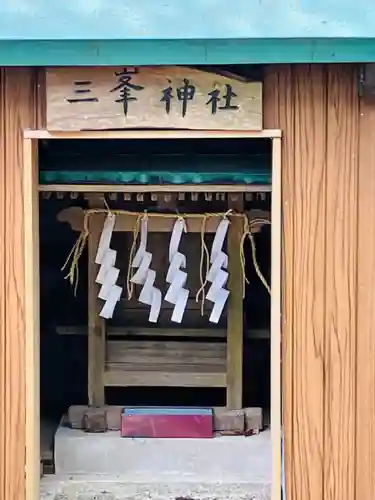 三峯神社